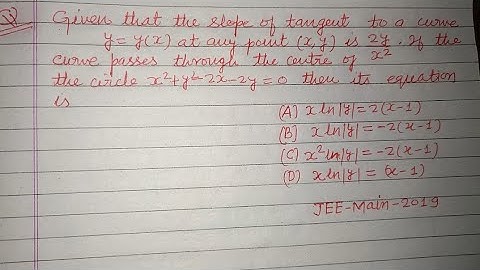 Q Given that the slope of tangent to a curve
y = y(x) at any point (x, y) is 2y/x². If the
curve passes through the centre of
the circle x²+y²-2x-2y=0 then its equation
is
(A) x ln|y| = 2(x-1)
(B) x ln|y| = -2(x-1)
(C) x² ln|y| = -2(x-1)
(D) x ln|y| = (x-1)
JEE-Main-2019